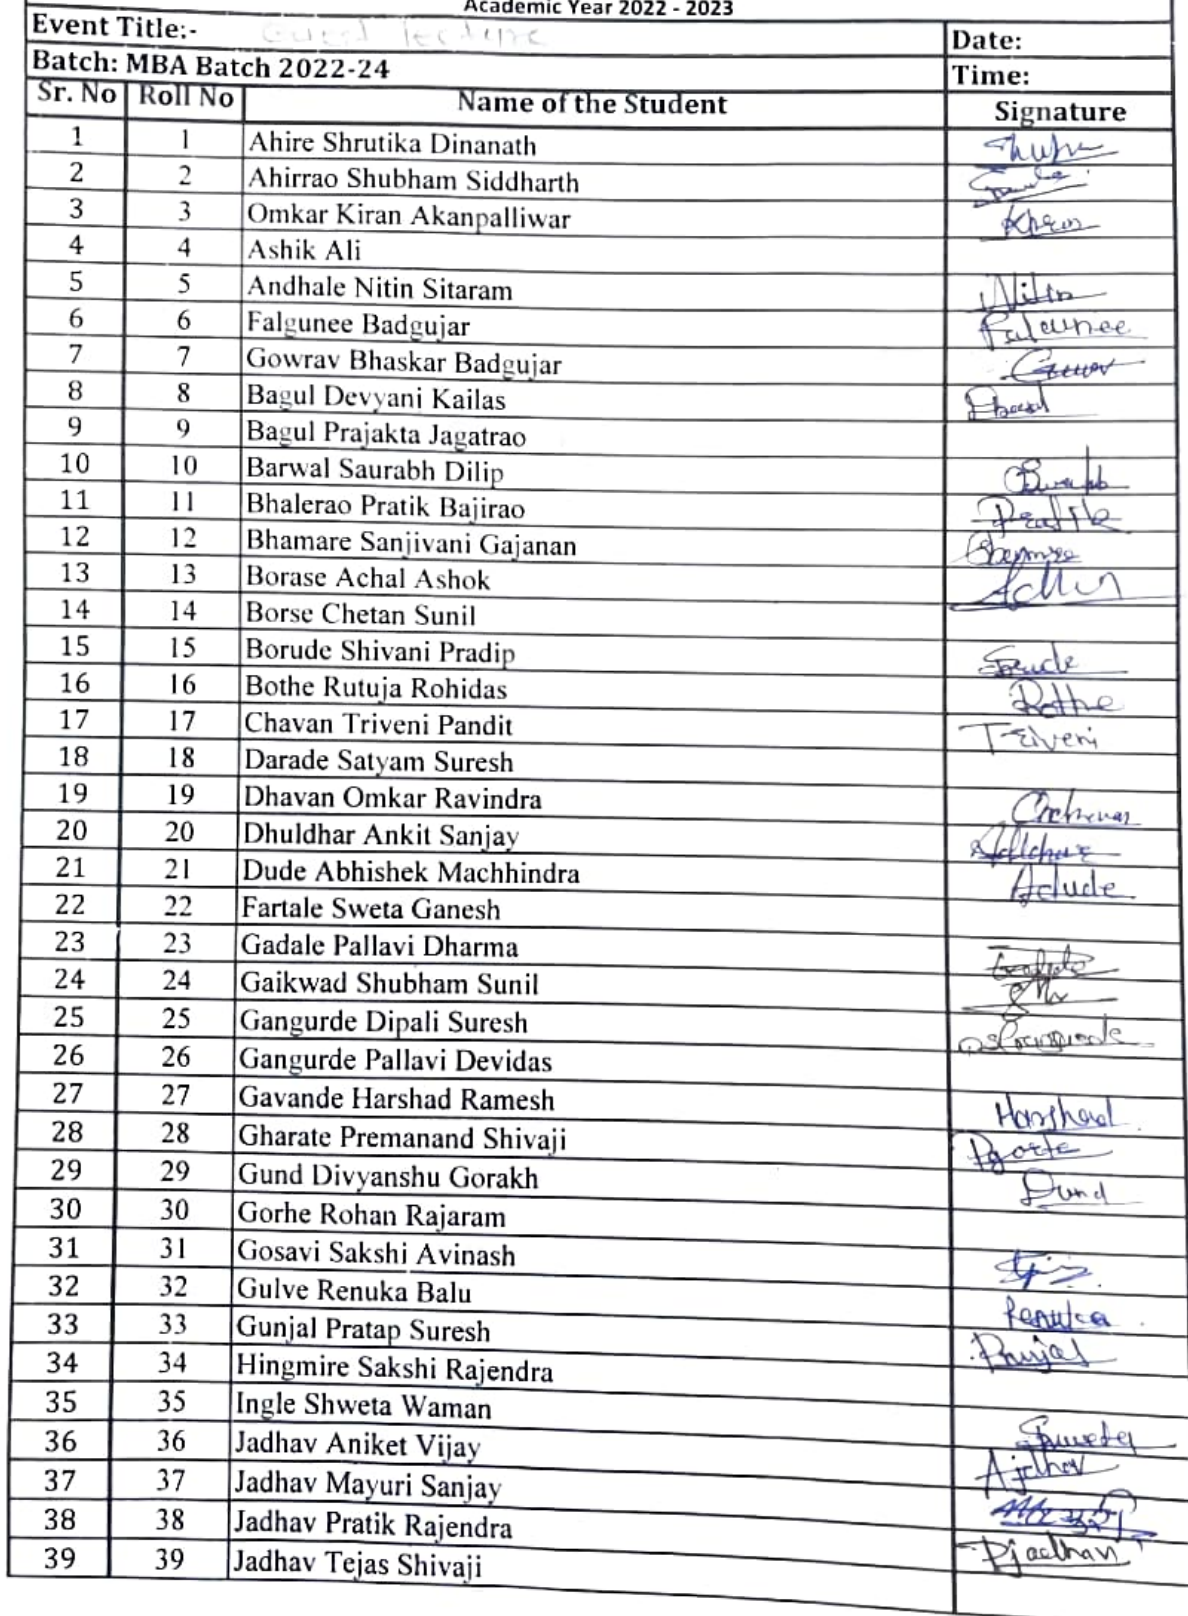 Academic Year 2022 - 2023
Event Title:- Guest lecture Date:
Batch: MBA Batch 2022-24 Time:
Sr. No Roll No Name of the Student Signature
1 1 Ahire Shrutika Dinanath
2 2 Ahirrao Shubham Siddharth
3 3 Omkar Kiran Akanpalliwar
4 4 Ashik Ali
5 5 Andhale Nitin Sitaram Nitin
6 6 Falgunee Badgujar Falgunee
7 7 Gowrav Bhaskar Badgujar
8 8 Bagul Devyani Kailas
9 9 Bagul Prajakta Jagatrao
10 10 Barwal Saurabh Dilip
11 11 Bhalerao Pratik Bajirao Pratik
12 12 Bhamare Sanjivani Gajanan
13 13 Borase Achal Ashok
14 14 Borse Chetan Sunil
15 15 Borude Shivani Pradip
16 16 Bothe Rutuja Rohidas Rothe
17 17 Chavan Triveni Pandit Triveni
18 18 Darade Satyam Suresh
19 19 Dhavan Omkar Ravindra
20 20 Dhuldhar Ankit Sanjay
21 21 Dude Abhishek Machhindra Adude
22 22 Fartale Sweta Ganesh
23 23 Gadale Pallavi Dharma
24 24 Gaikwad Shubham Sunil
25 25 Gangurde Dipali Suresh
26 26 Gangurde Pallavi Devidas
27 27 Gavande Harshad Ramesh Harshad
28 28 Gharate Premanand Shivaji
29 29 Gund Divyanshu Gorakh Dund
30 30 Gorhe Rohan Rajaram
31 31 Gosavi Sakshi Avinash
32 32 Gulve Renuka Balu Renuka
33 33 Gunjal Pratap Suresh
34 34 Hingmire Sakshi Rajendra
35 35 Ingle Shweta Waman
36 36 Jadhav Aniket Vijay Ajdhav
37 37 Jadhav Mayuri Sanjay
38 38 Jadhav Pratik Rajendra Pjadhav
39 39 Jadhav Tejas Shivaji